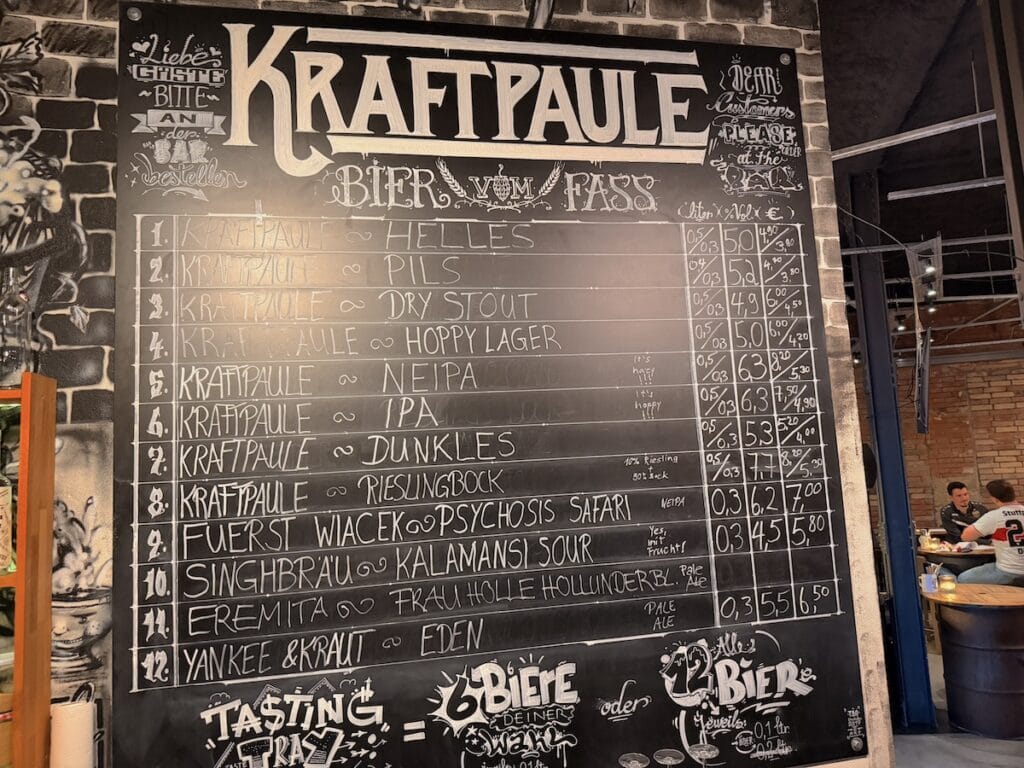 Liebe
GÄSTE
BITTE
AN
der
BAR
bestellen
KRAFTPAULE
DEAR
Customers
PLEASE
ORDER
at the
BAR
BIER VOM FASS
(liter)(%Vol.)(€)
1. KRAFTPAULE ~ HELLES 0,5/0,3 5,0 4,90/3,90
2. KRAFTPAULE ~ PILS 5,2 3,80
3. KRAFTPAULE ~ DRY STOUT 0,5/0,3 4,9 6,00/4,50
4. KRAFTPAULE ~ HOPPY LAGER 0,5/0,3 5,0 6,00/4,20
5. KRAFTPAULE ~ NEIPA it's hazy !!! 0,5/0,3 6,3 8,20/5,30
6. KRAFTPAULE ~ IPA it's hoppy !!! 0,5/0,3 6,3 7,50/4,90
7. KRAFTPAULE ~ DUNKLES 0,5/0,3 5,3 5,20/4,00
8. KRAFTPAULE ~ RIESLINGBOCK Riesling + Bock 0,5/0,3 7,7 8,20/5,30
9. FUERST WIACEK ~ PSYCHOSIS SAFARI NEIPA 0,3 6,2 7,00
10. SINGHBRÄU ~ KALAMANSI SOUR Yes, mit Frucht! 0,3 4,5 5,80
11. EREMITA ~ FRAU HOLLE HOLLUNDERBL. Pale Ale
12. YANKEE & KRAUT ~ EDEN PALE ALE 0,3 5,5 6,50
TASTING
TRAY
=
6 BIERE
DEINER
WAHL
jeweils 0,1 ltr.
oder
12 Alle
BIERe
Jeweils:
0,1 ltr.
ODER
0,2 ltr.
Stuttg
2